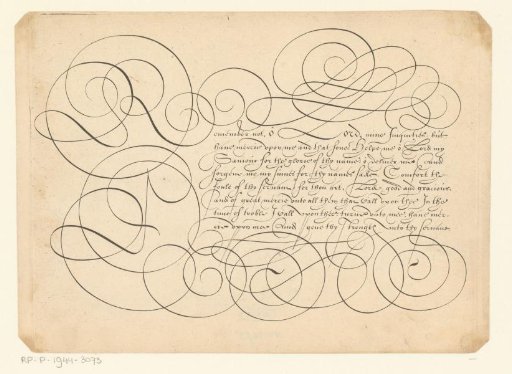 Remember not, O LORD, mine Iniquities, but
have mercie vpon me and that sone. Helpe me ô Lord my
Saviour for the glorie of thy name & deliver me And
forgeue me my sinnes for thy names sake. Comfort the
soule of thy servant for thou art, Lord, good and gracious
and of great mercie vnto all them that call vpon thee. In the
time of troble I call vpon thee turne vnto me & haue mer-
cie vpon me. And geue thy strength vnto thy servant
RP-P-1944-3093